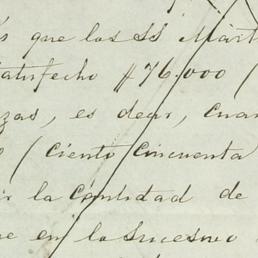 s que los SS Mart
satisfecho $76.000 (
zas, es decir, cuan
( ciento cincuenta
ir la cantidad de
e en lo sucesivo